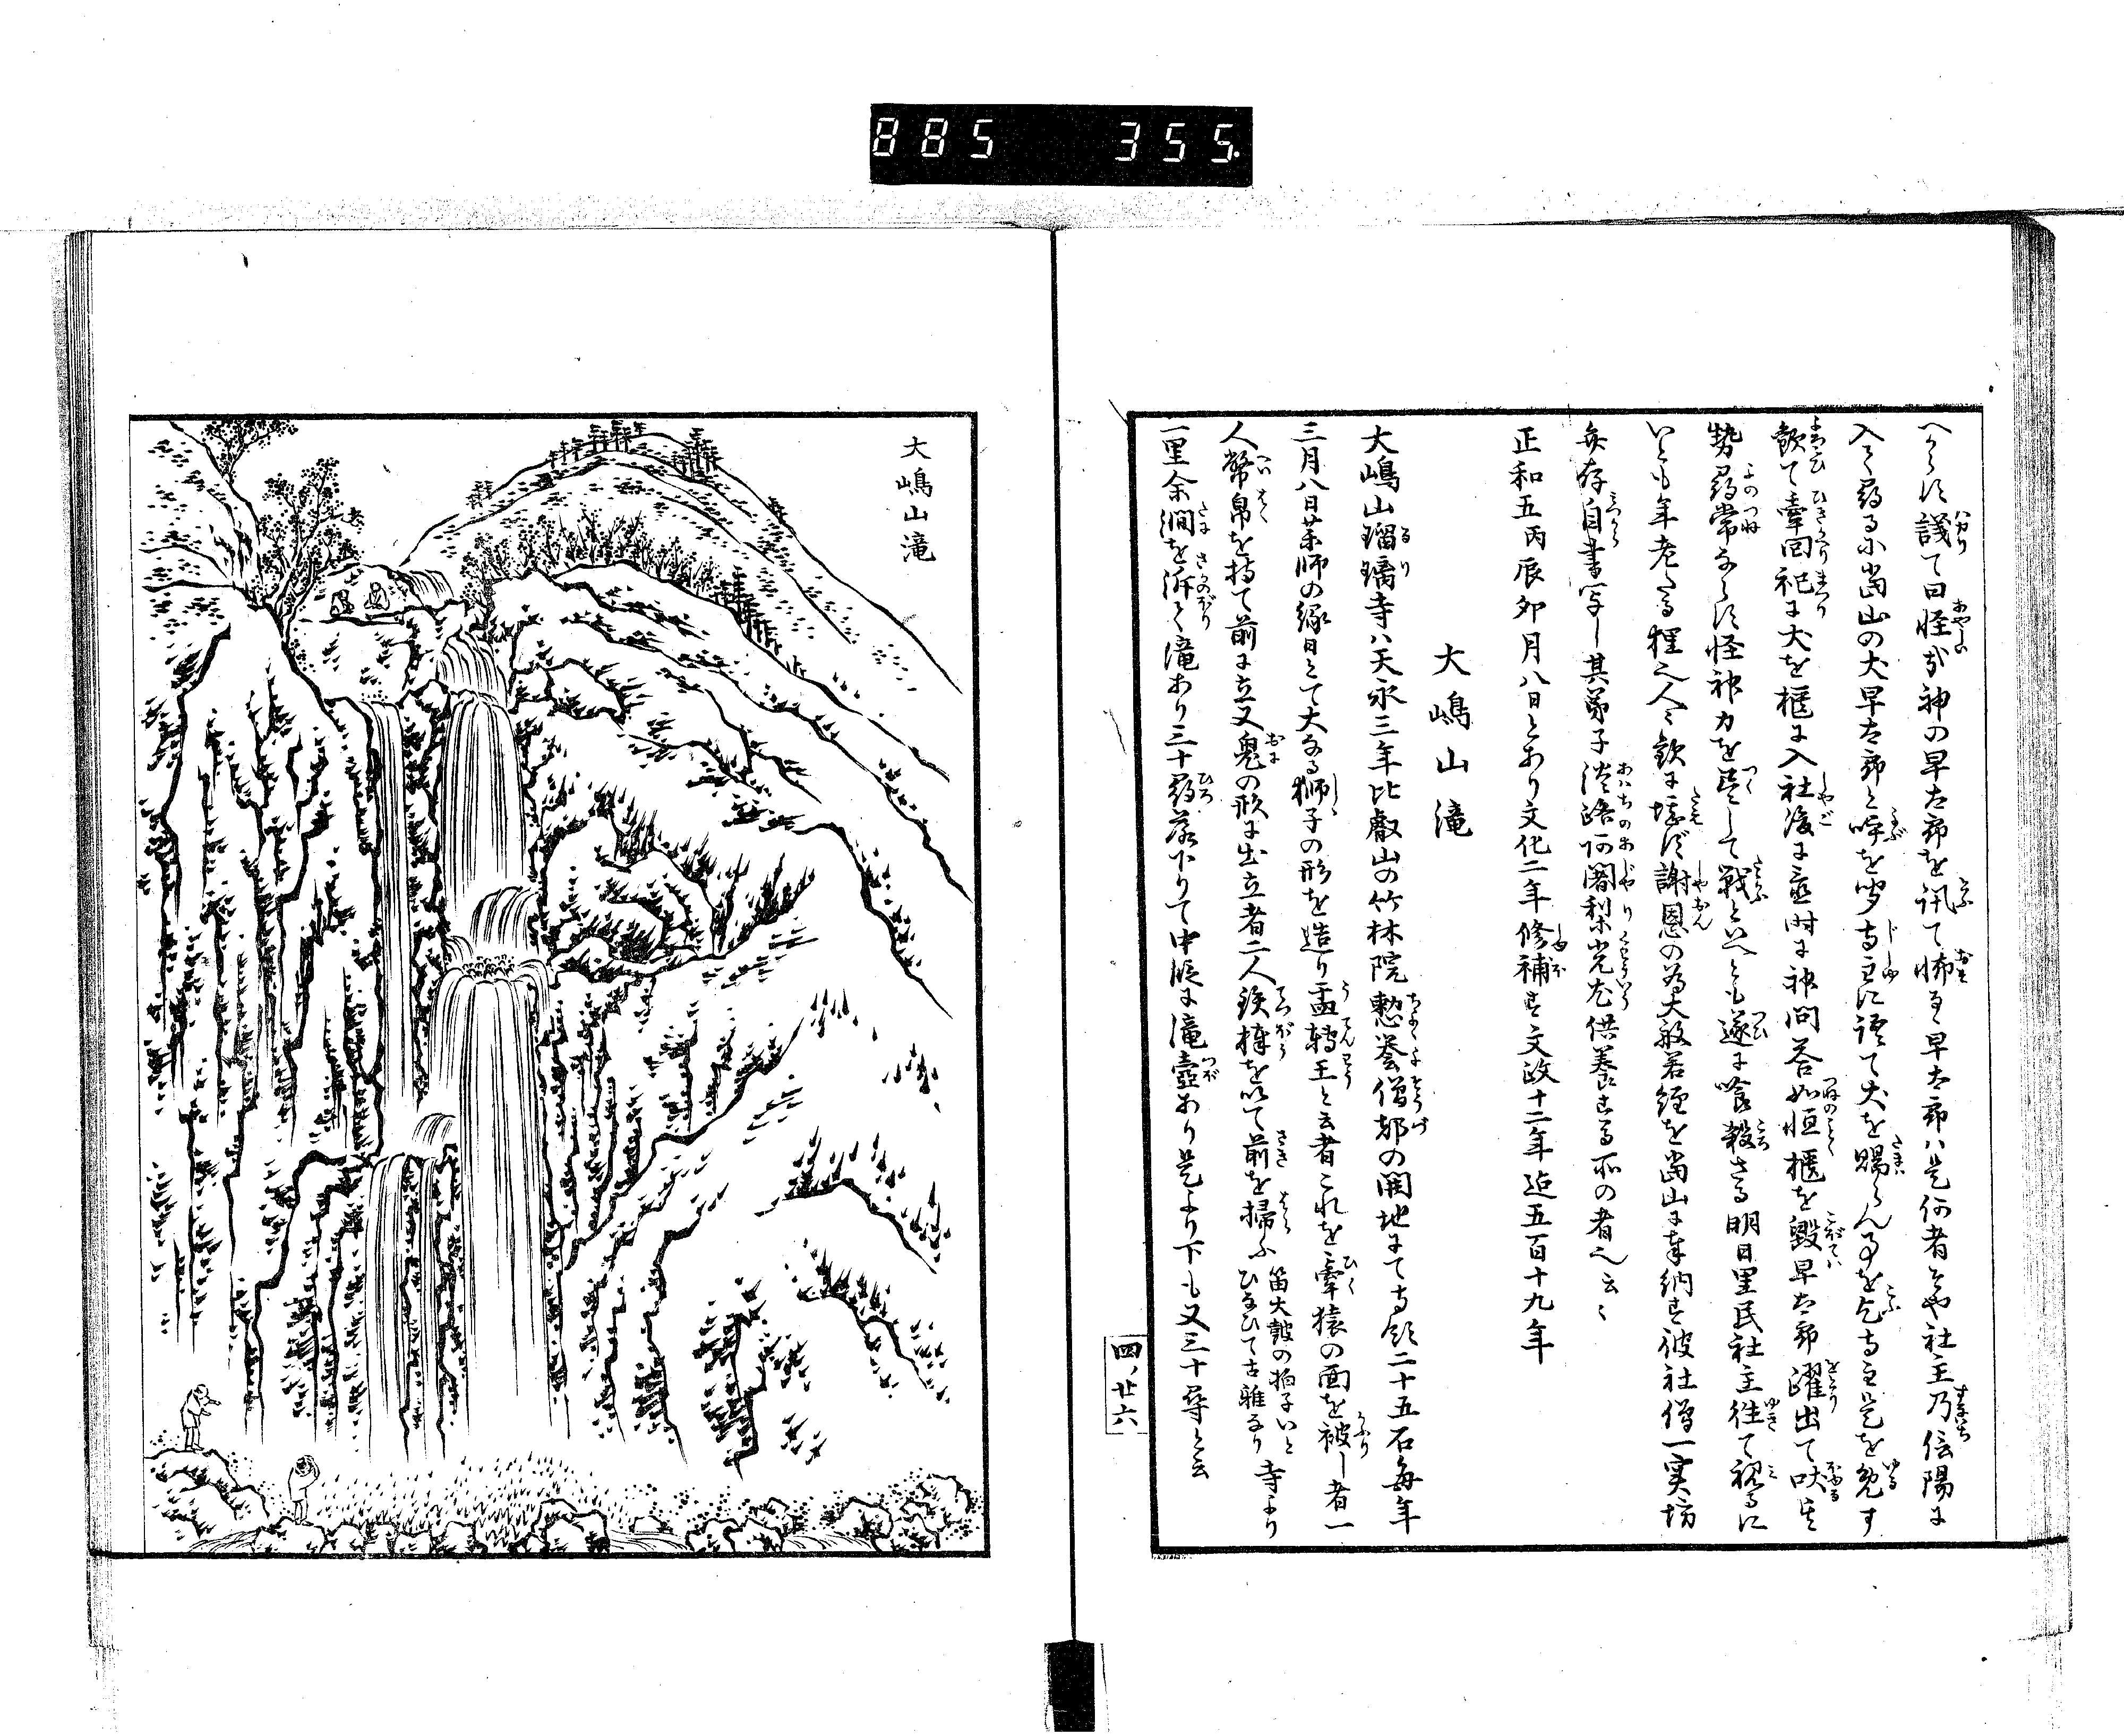 885 355.
へからす議て曰怪哉神の早太郎を訊て怖る早太郎ハ是何者そや社主乃信陽に
入て尋るに当山の犬早太郎と呼を聞寺主に語て犬を賜らん事を乞寺主是を免す
歓て牽回祀に犬を櫃に入社後に至時に神問答如恒櫃を毀早太郎躍出て吠其
勢尋常ならす怪神力を尽して戦といへとも遂に喰殺さる明日里民社主往て視るに
いとも年老たる狸也人々歓に堪す謝恩の為大般若経を当山に奉納す彼社僧一実坊
弁存自書写し其弟子淡路阿闍梨光尤供養する所の者也云々
正和五丙辰卯月八日とあり文化二年修補す文政十二年迄五百十九年
大嶋山滝
大嶋山瑠璃寺ハ天永三年比叡山の竹林院僧都の開地にて寺領二十五石毎年
三月八日薬師の縁日とて大なる獅子の形を造り盂轉王と云者これを牽猿の面を被し者一
人幣帛を持て前に立又鬼の形に出立者二人鉄棒を以て前を掃ふ笛大皷の拍子いと
ひなひて古雅なり寺より
一里余澗を泝て滝あり三十尋落下りて中段に滝壺あり是より下も又三十尋と云
四ノ廿六
大嶋山滝